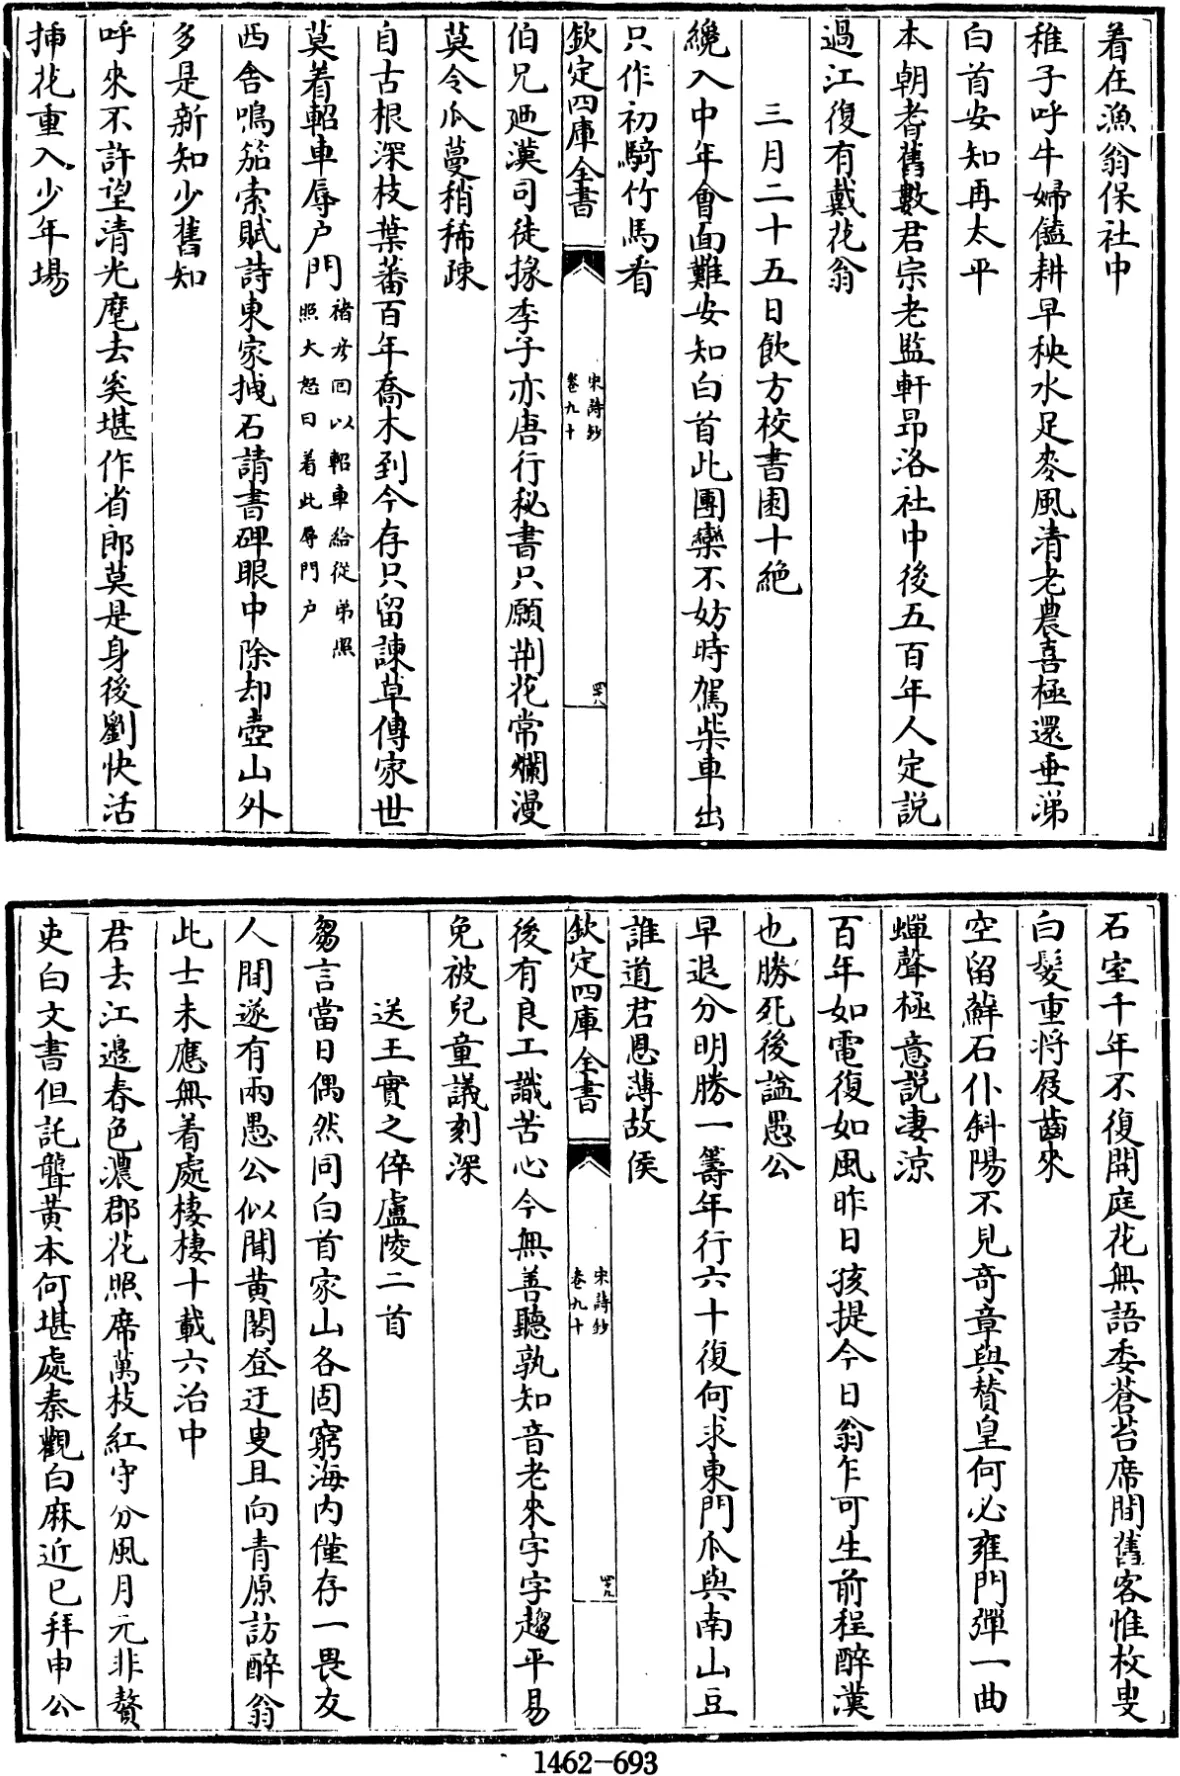 着在漁翁保社中
稚子呼牛婦饁耕早秧水足麥風清老農喜極還垂涕
白首安知再太平
本朝耆舊數君宗老監軒昻洛社中後五百年人定説
過江復有戴花翁
三月二十五日飲方校書園十絶
纔入中年會面難安知白首此團欒不妨時駕柴車出
只作初騎竹馬看
欽定四庫全書
宋詩鈔
卷九十
四十八
伯兄廼漢司徒掾季子亦唐行秘書只願荆花常爛漫
莫令瓜蔓稍稀疎
自古根深枝葉蕃百年喬木到今存只留諫草傳家世
莫着軺車辱户門褚彦回以軺車給從弟照
照大怒曰着此辱門户
西舍鳴笳索賦詩東家拽石請書碑眼中除却壺山外
多是新知少舊知
呼來不許望清光麾去奚堪作省郎莫是身後劉快活
挿花重入少年場
石室千年不復開庭花無語委蒼苔席間舊客惟枚叟
白髮重將屐齒來
空留蘚石仆斜陽不見奇章與賛皇何必雍門彈一曲
蟬聲極意説凄涼
百年如電復如風昨日孩提今日翁乍可生前程醉漢
也勝死後諡愚公
早退分明勝一籌年行六十復何求東門瓜與南山豆
誰道君恩薄故侯
欽定四庫全書
宋詩鈔
卷九十
四十九
後有良工識苦心今無善聽孰知音老來字字趨平易
免被兒童議刻深
送王實之倅廬陵二首
芻言當日偶然同白首家山各固窮海内僅存一畏友
人間遂有兩愚公似聞黄閣登迂叟且向青原訪醉翁
此士未應無着處棲棲十載六治中
君去江邊春色濃郡花照席萬枝紅守分風月元非贅
吏白文書但託聾黄本何堪處秦觀白麻近已拜申公
1462-693